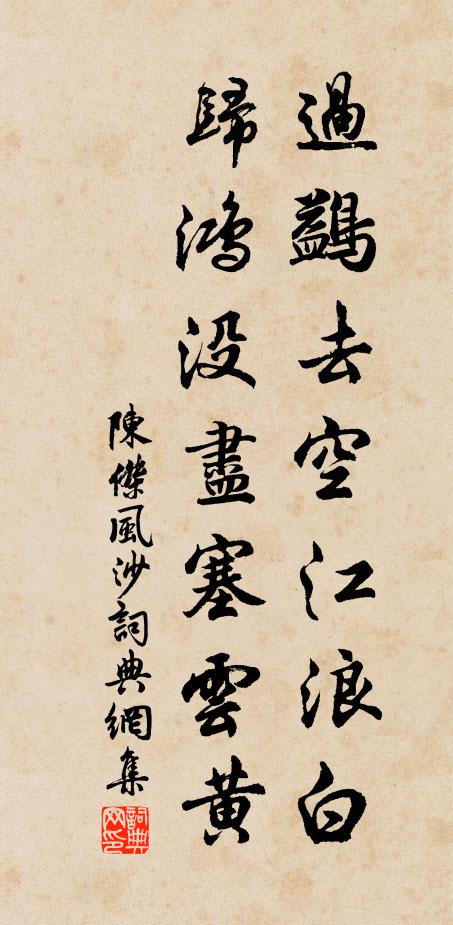 過鷁去空江浪白
歸鴻没盡塞雲黃
陳傑風沙詞典網集
詞典网印